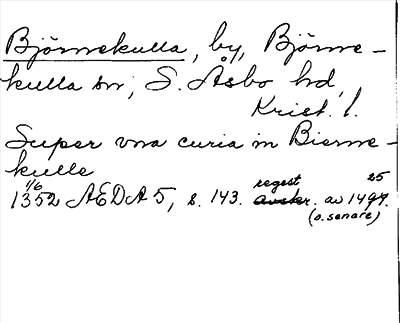 Björnekulla, by, Björne-
kulla sn, S. Åsbo hd,
Krist. l.
Super vna curia in Bierne-
kulle
1/6 regest 25
1352 ÆDA 5, s. 143. avskr. av 1497.
(o. senare)